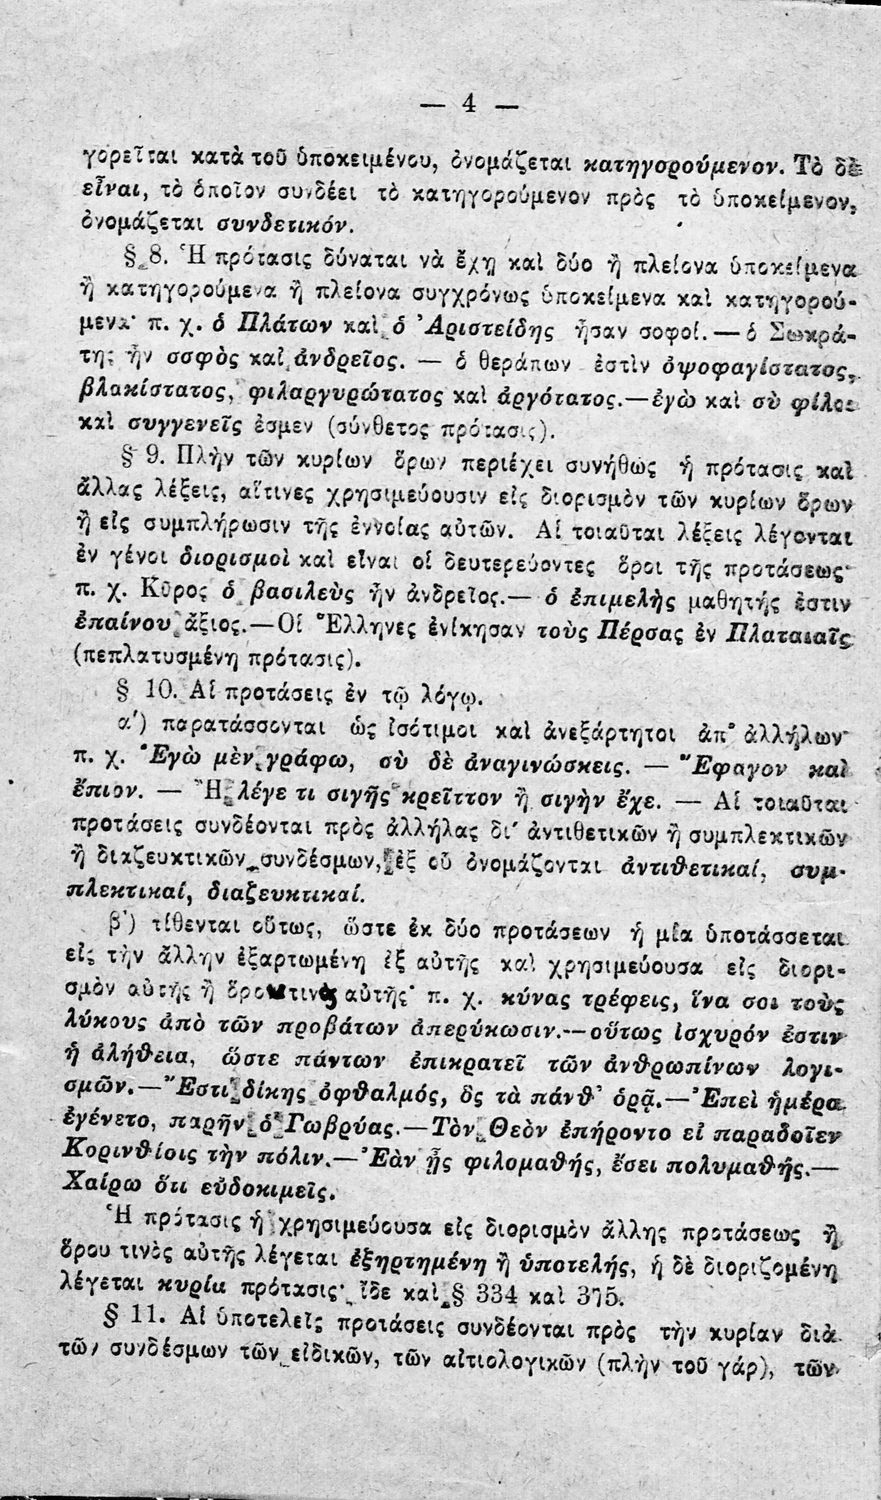 — 4 —
γορεῖται κατὰ τοῦ ὑποκειμένου, ὀνομάζεται κατηγορούμενον. Τὸ δὲ
εἶναι, τὸ ὁποῖον συνδέει τὸ κατηγορούμενον πρὸς τὸ ὑποκείμενον,
ὀνομάζεται συνδετικόν.
§ 8. Ἡ πρότασις δύναται νὰ ἔχῃ καὶ δύο ἢ πλείονα ὑποκείμενα
ἢ κατηγορούμενα ἢ πλείονα συγχρόνως ὑποκείμενα καὶ κατηγορού-
μενα· π. χ. ὁ Πλάτων καὶ ὁ Ἀριστείδης ἦσαν σοφοί.— ὁ Σωκρά-
της ἦν σοφὸς καὶ ἀνδρεῖος. — ὁ θεράπων ἐστὶν ὀψοφαγίστατος,
βλακίστατος, φιλαργυρώτατος καὶ ἀργότατος.—ἐγὼ καὶ σὺ φίλοι
καὶ συγγενεῖς ἐσμεν (σύνθετος πρότασις).
§ 9. Πλὴν τῶν κυρίων ὅρων περιέχει συνήθως ἡ πρότασις καὶ
ἄλλας λέξεις, αἵτινες χρησιμεύουσιν εἰς διορισμὸν τῶν κυρίων ὅρων
ἢ εἰς συμπλήρωσιν τῆς ἐννοίας αὐτῶν. Αἱ τοιαῦται λέξεις λέγονται
ἐν γένει διορισμοὶ καὶ εἶναι οἱ δευτερεύοντες ὅροι τῆς προτάσεως·
π. χ. Κῦρος ὁ βασιλεὺς ἦν ἀνδρεῖος.— ὁ ἐπιμελὴς μαθητής ἐστιν
ἐπαίνου ἄξιος.—Οἱ Ἕλληνες ἐνίκησαν τοὺς Πέρσας ἐν Πλαταιαῖς
(πεπλατυσμένη πρότασις).
§ 10. Αἱ προτάσεις ἐν τῷ λόγῳ.
α′) παρατάσσονται ὡς ἰσότιμοι καὶ ἀνεξάρτητοι ἀπ' ἀλλήλων·
π. χ. Ἐγὼ μὲν γράφω, σὺ δὲ ἀναγινώσκεις. — Ἔφαγον καὶ
ἔπιον. — Ἢ λέγε τι σιγῆς κρεῖττον ἢ σιγὴν ἔχε. — Αἱ τοιαῦται
προτάσεις συνδέονται πρὸς ἀλλήλας δι' ἀντιθετικῶν ἢ συμπλεκτικῶν
ἢ διαζευκτικῶν συνδέσμων, ἐξ οὗ ὀνομάζονται ἀντιθετικαί, συμ-
πλεκτικαί, διαζευκτικαί.
β′) τίθενται οὕτως, ὥστε ἐκ δύο προτάσεων ἡ μία ὑποτάσσεται
εἰς τὴν ἄλλην ἐξαρτωμένη ἐξ αὐτῆς καὶ χρησιμεύουσα εἰς διορι-
σμὸν αὐτῆς ἢ ὅρου τινὸς αὐτῆς· π. χ. κύνας τρέφεις, ἵνα σοι τοὺς
λύκους ἀπὸ τῶν προβάτων ἀπερύκωσιν.—οὕτως ἰσχυρόν ἐστιν
ἡ ἀλήθεια, ὥστε πάντων ἐπικρατεῖ τῶν ἀνθρωπίνων λογι-
σμῶν.—Ἔστι δίκης ὀφθαλμός, ὃς τὰ πάνθ' ὁρᾷ.—Ἐπεὶ ἡμέρα
ἐγένετο, παρῆν ὁ Γωβρύας.—Τὸν Θεὸν ἐπήροντο εἰ παραδοῖεν
Κορινθίοις τὴν πόλιν.—Ἐὰν ᾖς φιλομαθής, ἔσει πολυμαθής.—
Χαίρω ὅτι εὐδοκιμεῖς.
Ἡ πρότασις ἡ χρησιμεύουσα εἰς διορισμὸν ἄλλης προτάσεως ἢ
ὅρου τινὸς αὐτῆς λέγεται ἐξηρτημένη ἢ ὑποτελής, ἡ δὲ διοριζομένη
λέγεται κυρία πρότασις· ἴδε καὶ § 334 καὶ 375.
§ 11. Αἱ ὑποτελεῖς προτάσεις συνδέονται πρὸς τὴν κυρίαν διὰ
τῶν συνδέσμων τῶν εἰδικῶν, τῶν αἰτιολογικῶν (πλὴν τοῦ γάρ), τῶν